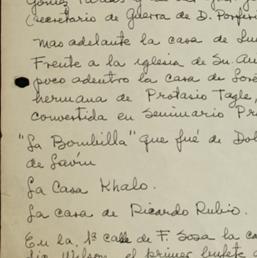 (secretario de Guerra de D. Porfirio
mas adelante la casa de
Frente a la iglesia de Sn. An
poco adentro la casa de José
hermana de Protasio Tagle,
convertida en Seminario Pr
"La Bombilla" que fué de Dol
de Lavín
La Casa Khalo.
La casa de Ricardo Rubio.
En la 1ª calle de F. Sosa la ca
Wilson, el primer bufete d